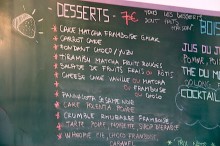 DESSERTS - 7€ TOUS LES DESSERTS
SONT FAITS
MAISON
CAKE MATCHA FRAMBOISE
CARROT CAKE
FONDANT CHOCO / YUZU
TIRAMISU MATCHA FRUITS ROUGES
SALADE DE FRUITS FRAIS OU RÔTIS
CHEESE CAKE VANILLE OU MATCHA
OU FRAMBOISE
OU CHOCO
PANNACOTTA SESAME NOIR
CAKE POLENTA POIRE
CRUMBLE RHUBARBE FRAMBOISE
TARTE POIRE, NOISETTE, SIROP D'ERABLE
WHOOPIE PIE, CHOCO FRAMBOISE,
CARAMEL
BOIS
JUS DU J
POMME, POI
THE DU M
COCKTAIL